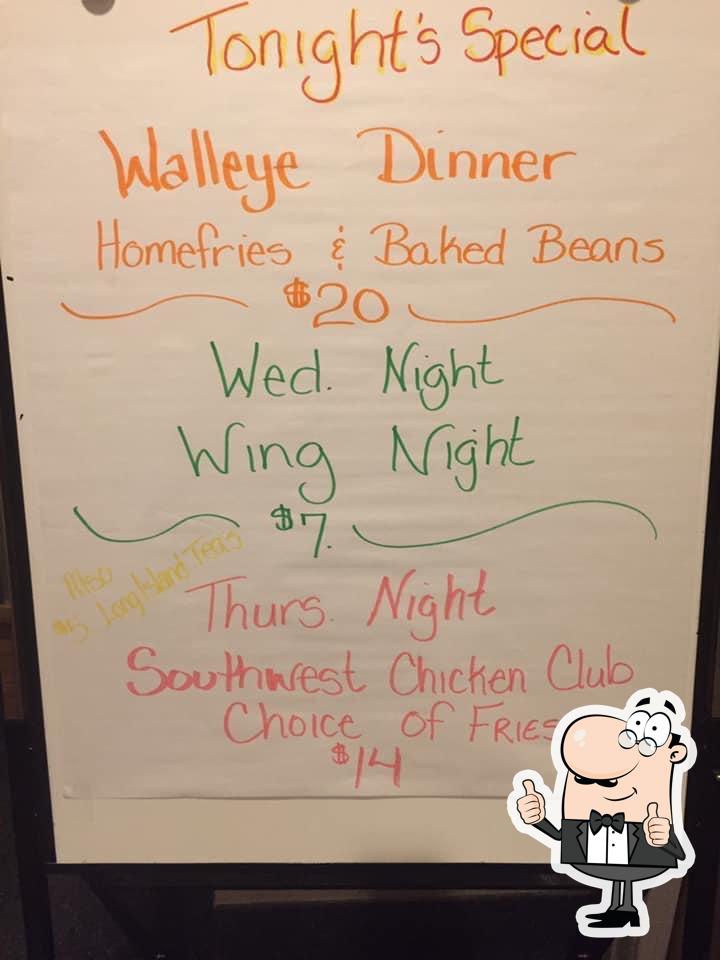 Tonight's Special
Walleye Dinner
Homefries & Baked Beans
$20
Wed. Night
Wing Night
$7.
Also
$5 Long Island Teas
Thurs. Night
Southwest Chicken Club
Choice of FRIES
$14